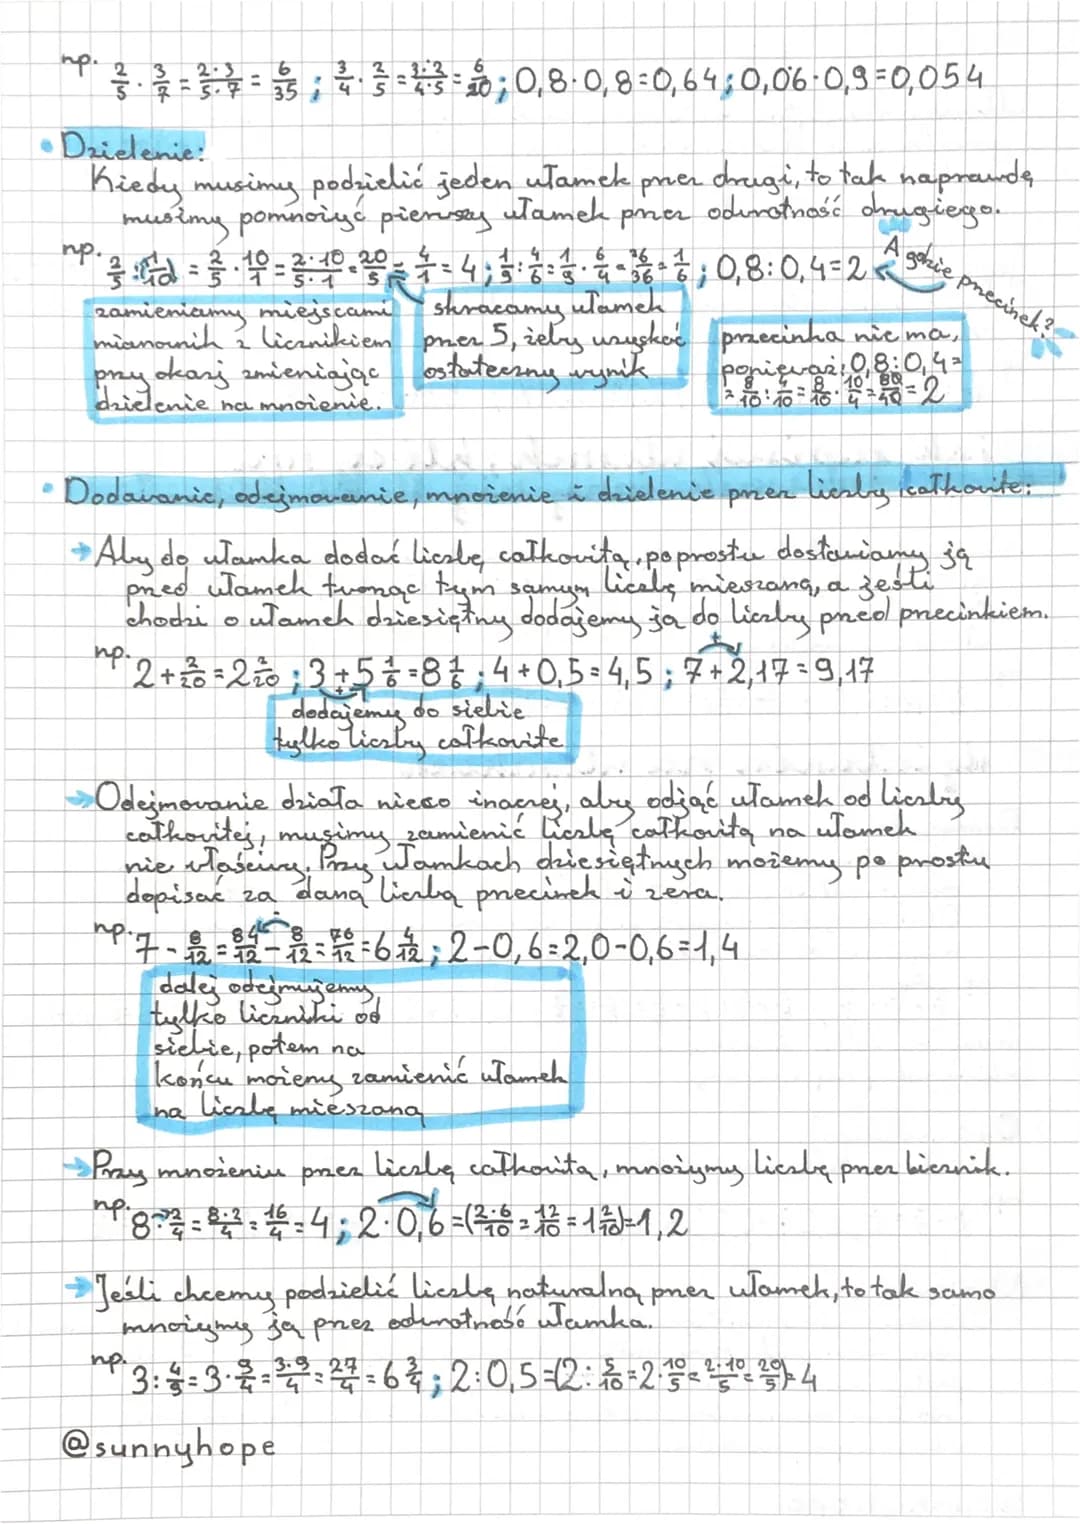 np. 2/5 · 3/7 = 2·3/5·7 = 6/35 ; 3/4 · 2/5 = 3·2/4·5 = 6/20 ; 0,8·0,8=0,64 ; 0,06·0,9=0,054
• Dzielenie:
Kiedy musimy podzielić jeden ułamek przez drugi, to tak naprawdę
musimy pomnożyć pierwszy ułamek przez odwrotność drugiego.
np. 2/5 : 1/10 = 2/5 · 10/1 = 2·10/5·1 = 20/5 = 4/1 = 4 ; 1/9 : 4/6 = 1/9 · 6/4 = 6/36 = 1/6 ; 0,8:0,4=2
A gdzie przecinek?
zamieniamy miejscami
mianownik z licznikiem
przy okazji zmieniając
dzielenie na mnożenie.
skracamy ułamek
przez 5, żeby uzyskać
ostateczny wynik
przecinka nie ma,
ponieważ: 0,8:0,4=
= 8/10 : 4/10 = 8/10 · 10/4 = 80/40 = 2
• Dodawanie, odejmowanie, mnożenie i dzielenie przez liczby całkowite:
→ Aby do ułamka dodać liczbę całkowitą, po prostu dostawiamy ją
przed ułamek tworząc tym samym liczbę mieszaną, a jeśli
chodzi o ułamek dziesiętny dodajemy ją do liczby przed przecinkiem.
np. 2 + 2/20 = 2 2/20 ; 3 + 5 1/6 = 8 1/6 ; 4+0,5=4,5 ; 7+2,17=9,17
dodajemy do siebie
tylko liczby całkowite
→ Odejmowanie działa nieco inaczej, aby odjąć ułamek od liczby
całkowitej, musimy zamienić liczbę całkowitą na ułamek
nie właściwy. Przy ułamkach dziesiętnych możemy po prostu
dopisać za daną liczbą przecinek i zera.
np. 7 - 8/12 = 84/12 - 8/12 = 76/12 = 6 4/12 ; 2-0,6=2,0-0,6=1,4
dalej odejmujemy
tylko liczniki od
siebie, potem na
końcu możemy zamienić ułamek
na liczbę mieszaną
→ Przy mnożeniu przez liczbę całkowitą, mnożymy liczbę przez licznik.
np. 8 · 2/4 = 8·2/4 = 16/4 = 4 ; 2·0,6 = (2·6/10 = 12/10 = 1 2/10) = 1,2
→ Jeśli chcemy podzielić liczbę naturalną przez ułamek, to tak samo
mnożymy ją przez odwrotność ułamka.
np. 3 : 4/9 = 3 · 9/4 = 3·9/4 = 27/4 = 6 3/4 ; 2:0,5 = (2 : 5/10 = 2 · 10/5 = 2·10/5 = 20/5) = 4
@sunnyhope